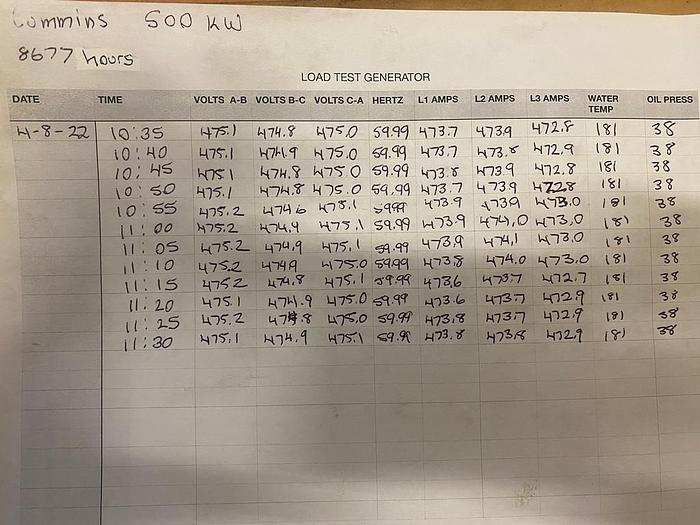 Cummins 500 KW
8677 hours
LOAD TEST GENERATOR
DATE TIME VOLTS A-B VOLTS B-C VOLTS C-A HERTZ L1 AMPS L2 AMPS L3 AMPS WATER TEMP OIL PRESS
4-8-22 10:35 475.1 474.8 475.0 59.99 473.7 473.9 472.8 181 38
10:40 475.1 474.9 475.0 59.99 473.7 473.8 472.9 181 38
10:45 475.1 474.8 475.0 59.99 473.8 473.9 472.8 181 38
10:50 475.1 474.8 475.0 59.99 473.7 473.9 472.8 181 38
10:55 475.2 474.6 475.1 59.99 473.9 473.9 473.0 181 38
11:00 475.2 474.9 475.1 59.99 473.9 474.0 473.0 181 38
11:05 475.2 474.9 475.1 59.99 473.9 474.1 473.0 181 38
11:10 475.2 474.9 475.0 59.99 473.8 474.0 473.0 181 38
11:15 475.2 474.8 475.1 59.99 473.6 473.7 472.7 181 38
11:20 475.1 474.9 475.0 59.99 473.6 473.7 472.9 181 38
11:25 475.2 474.8 475.0 59.99 473.8 473.7 472.9 181 38
11:30 475.1 474.9 475.1 59.99 473.8 473.8 472.9 181 38